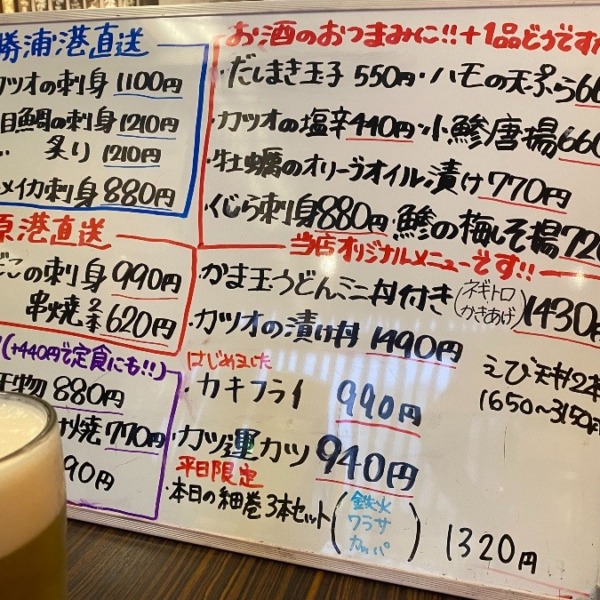 勝浦港直送
カツオの刺身 1100円
目鯛の刺身 1210円
炙り 1210円
メイカ刺身 880円
原港直送
だこの刺身 990円
串焼2本 620円
(+440円で定食にも!!)
干物 880円
け焼 770円
90円
お酒のおつまみに!!+1品どうですか
・だしまき玉子 550円・ハモの天ぷら66
・カツオの塩辛440円・小鯵唐揚660
・牡蠣のオリーブオイル漬け770円
・くじら刺身880円・鯵の梅しそ揚720
当店オリジナルメニューです!!
・かま玉うどんミニ丼付き(ネギトロ かきあげ)1430円
・カツオの漬け丼 1490円
はじめました
・カキフライ 990円
えび天丼2本
1650~3150円
・カツ運カツ 940円
平日限定
・本日の細巻3本セット(鉄火 ワラサ カッパ) 1320円